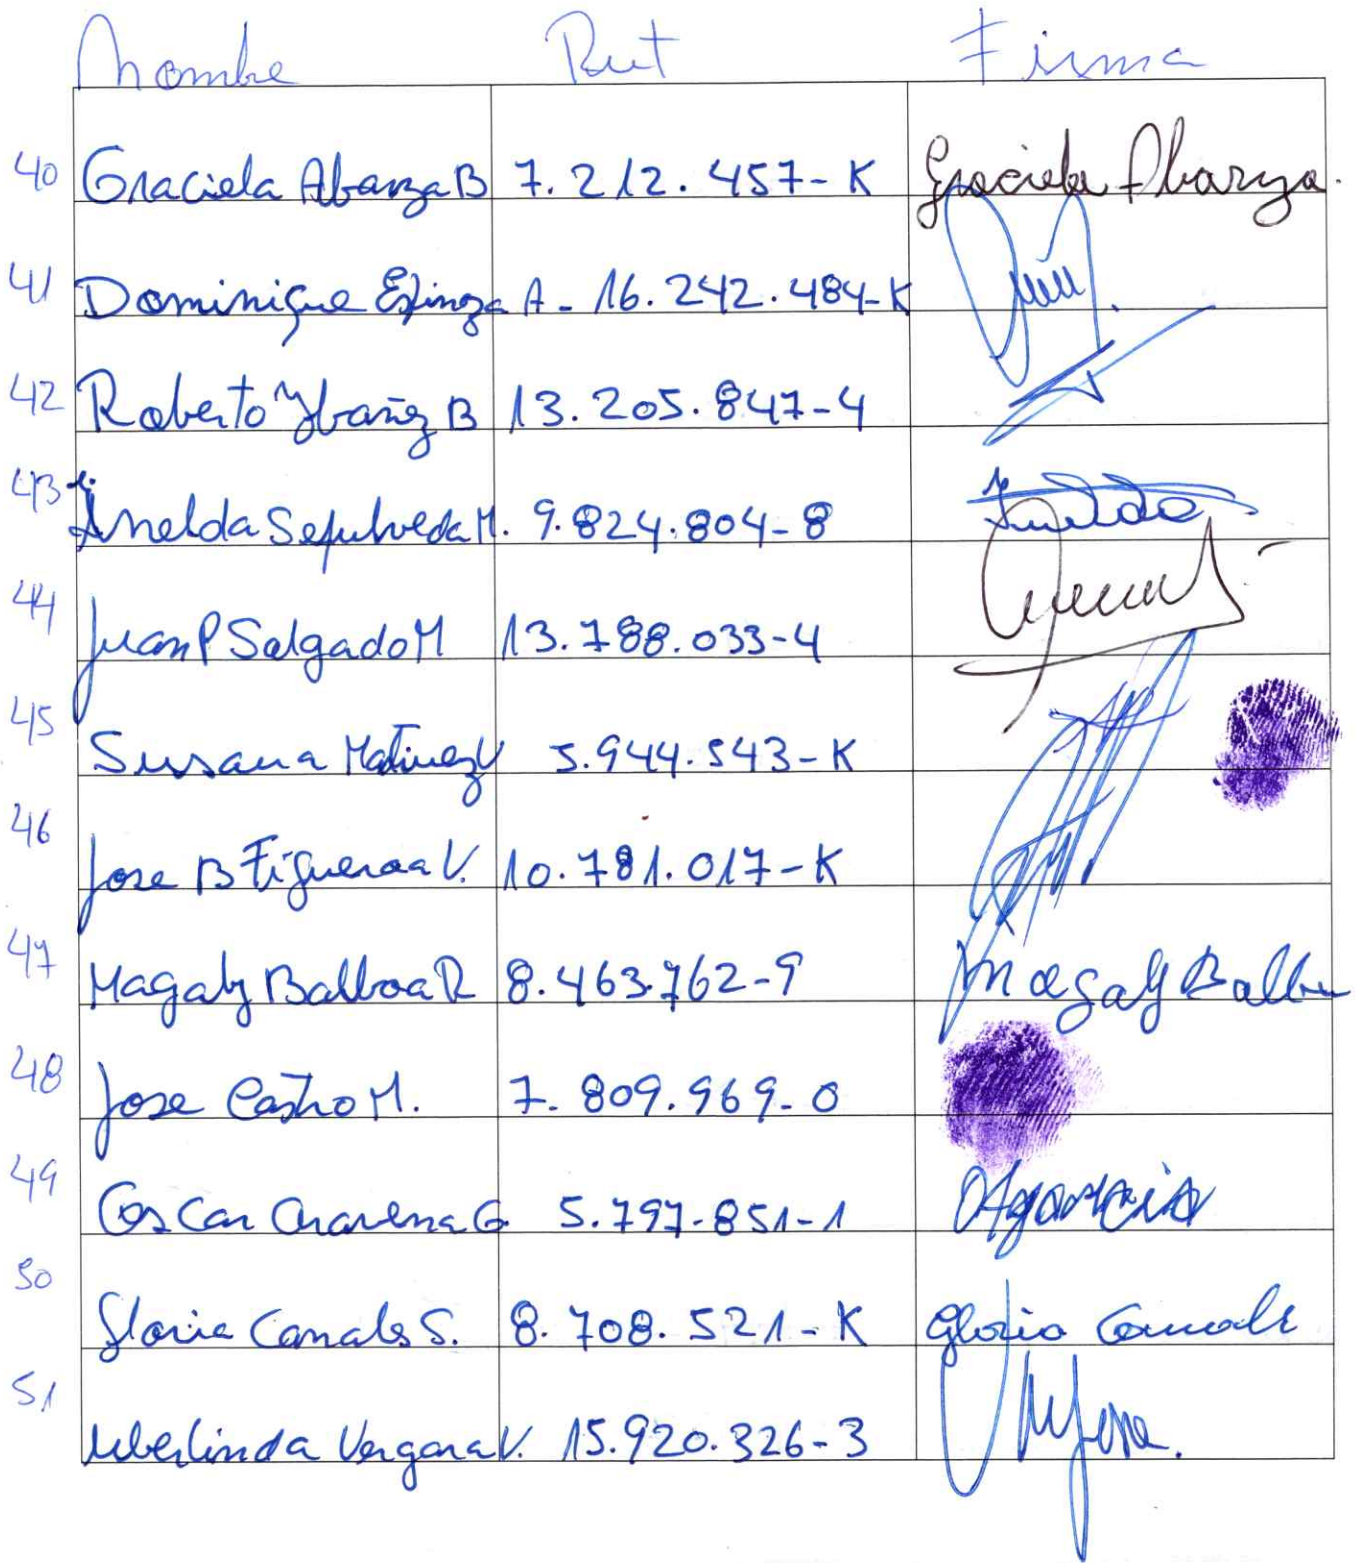 Nombre Rut Firma
40 Graciela Abarza B 7.212.457-K Graciela Abarza.
41 Dominique Espinoza A - 16.242.484-K
42 Roberto Ybañez B 13.205.847-4
43 Imelda Sepulveda M. 9.824.804-8 Imelda
44 Juan P Salgado M 13.788.033-4
45 Susana Matinez V 5.944.543-K
46 Jose B Figueroa V. 10.781.017-K
47 Magaly Balboa R 8.463.762-9 Magaly Balboa
48 Jose Castro M. 7.809.969-0
49 Oscar Aravena G 5.797.851-1
50 Gloria Canales S. 8.708.521-K Gloria Canale
51 Uberlinda Vergara V. 15.920.326-3